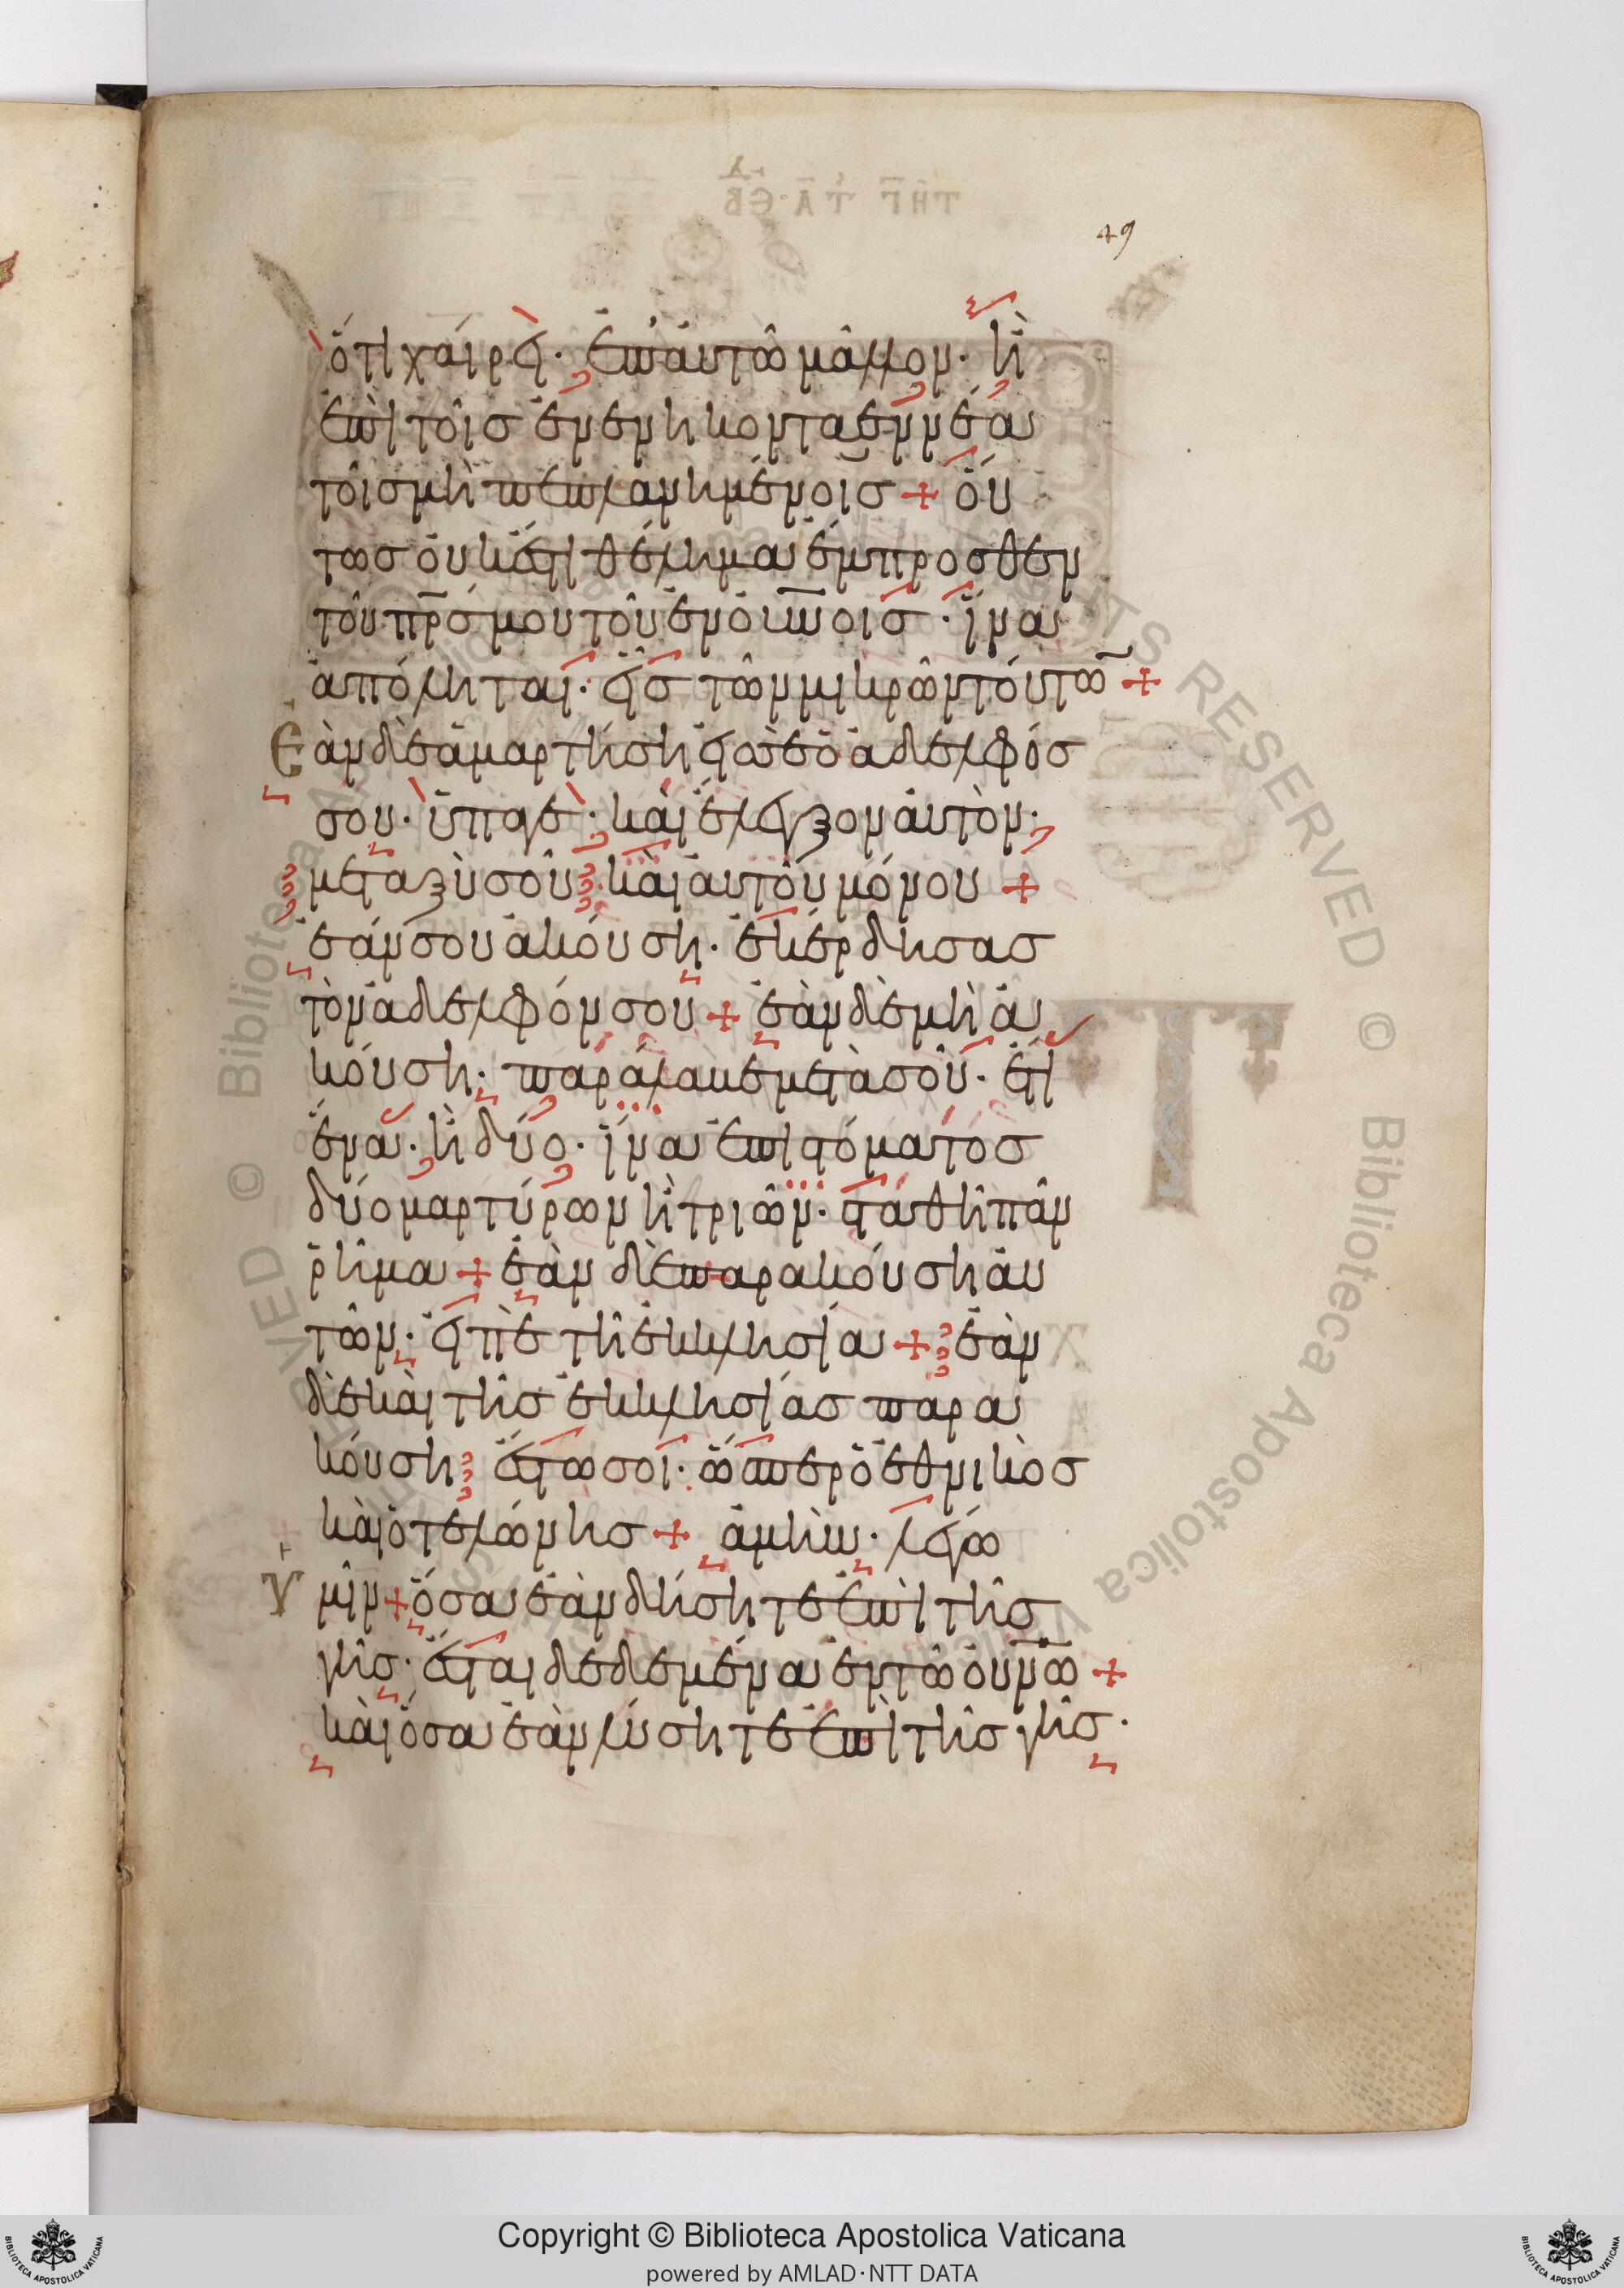 49
ὅτι χαίρει· ἐπ' αὐτῶ μᾶλλον· ἢ
ἐπὶ τοῖσ ἐνενηκονταεννέα
τοῖσ μὴ πεπλανημένοισ + οὕ
τωσ οὐκ ἔστι θέλημα ἔμπροσθεν
τοῦ πρσ μου τοῦ ἐν οὐνοισ· ἵνα
ἀπόληται· εἷσ τῶν μικρῶν τούτω̅ +
Ἐὰν δὲ ἁμαρτήση εἰσ σὲ ὁ ἀδελφόσ
σου· ὕπαγε· καὶ ἔλεγξον αὐτὸν·
μεταξὺ σοῦ· καὶ αὐτοῦ μόνου +
ἐάν σου ἀκούση· ἐκέρδησασ
τὸν ἀδελφόν σου + ἐὰν δὲ μὴ ἀ
κούση· παράλαβε μετὰ σοῦ· ἔτι
ἕνα· ἢ δύο· ἵνα ἐπὶ στόματοσ
δύο μαρτύρων ἢ τριῶν· σταθῆ πᾶν
ῥῆμα + ἐὰν δὲ παρακούση αὐ
τῶν· εἰπὲ τῆ ἐκκλησία + ἐὰν
δὲ καὶ τῆσ ἐκκλησίασ παρα
κούση ἔστω σοι· ὥσπερ ὁ ἐθνικὸσ
καὶ ὁ τελώνησ + ἀμὴν· λέγω
Ὑμῖν + ὅσα ἐὰν δήσητε ἐπὶ τῆσ
γῆσ· ἔσται δεδεμένα ἐν τῶ οὐνω +
καὶ ὅσα ἐὰν λύσητε ἐπὶ τῆσ γῆσ·
Copyright © Biblioteca Apostolica Vaticana
powered by AMLAD·NTT DATA